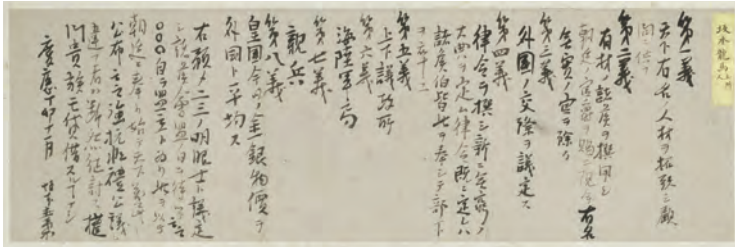 第一義
天下有名ノ人材ヲ招致シ顧
問ニ供フ
第二義
有材ノ諸侯ヲ撰用シ
朝廷ノ官爵ヲ賜ヒ現今有名
無実ノ官ヲ除ク
第三義
外国ノ交際ヲ議定ス
第四義
律令ヲ撰シ新ニ無窮ノ
大典ヲ定ム律令既ニ定レハ
諸侯伯皆此ヲ奉シテ部下
ヲ率ユ
第五義
上下議政所
第六義
海陸軍局
第七義
親兵
第八義
皇国今日ノ金銀物價ヲ
外国ト平均ス
右預メ二三ノ明眼士ト議定
シ諸侯會盟ノ日ヲ待ツテ云云
○○○自ラ盟主ト為リ此ヲ以テ
朝廷ニ奉リ始テ天下萬民ニ
公布云云強抗非禮公議ニ
違フ者ハ断然征討ス權
門貴族モ貸借スルコトナシ
慶應丁卯十一月 坂本直柔
坂本龍馬